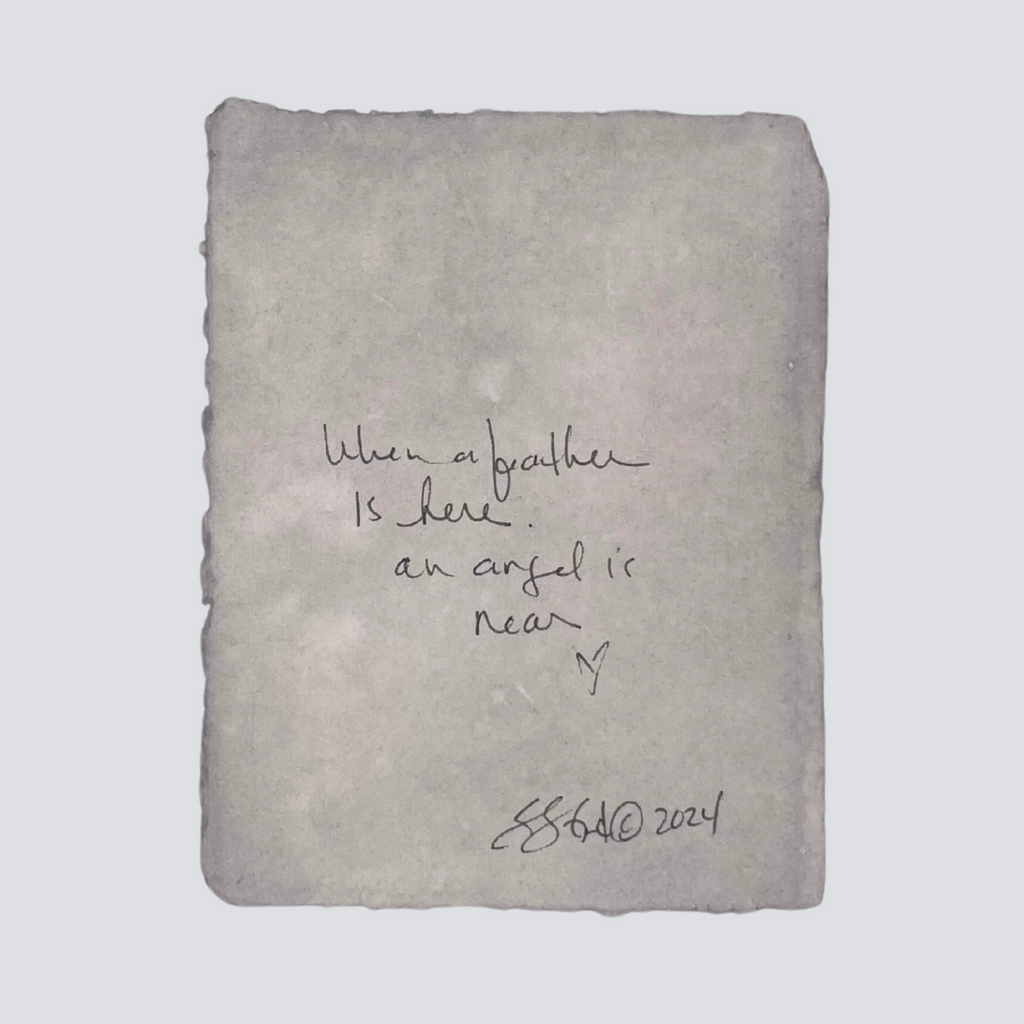 When a feather
Is here.
an angel is
near
© 2024